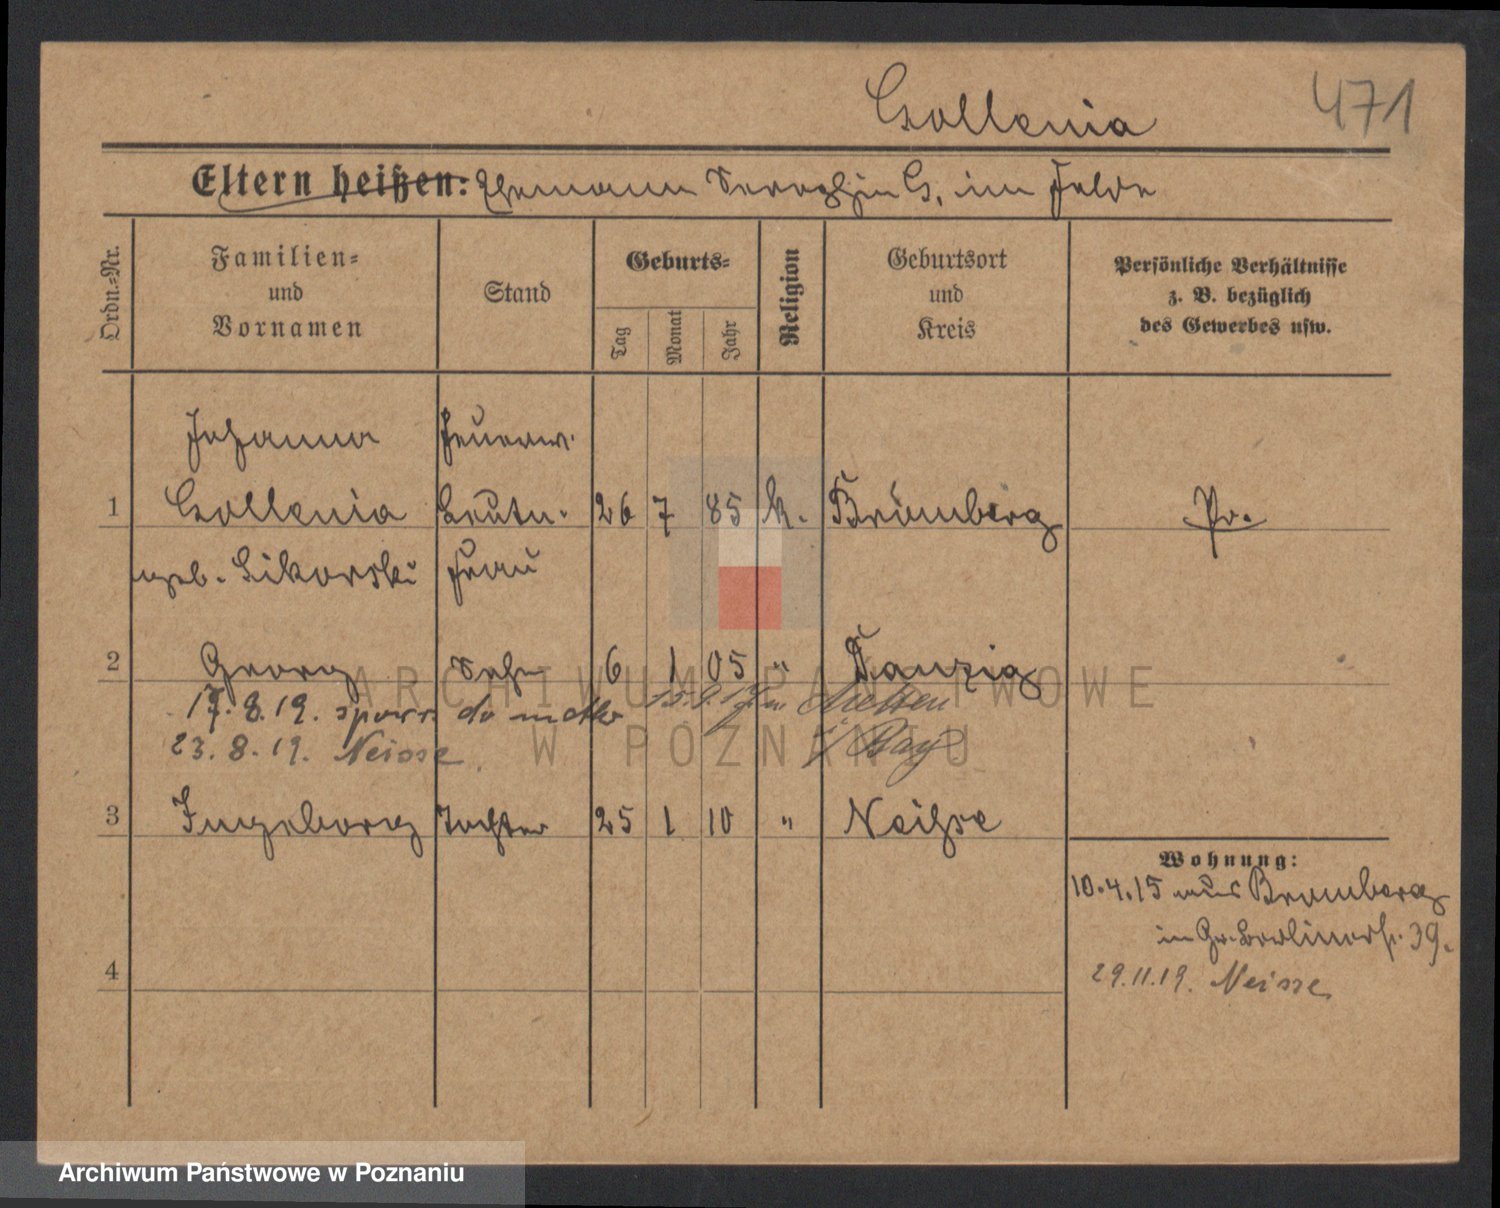 471
Gollenia
Eltern heißen: Ehemann Seraphin G. im Felde
Ordn.=Nr.
Familien=
und
Vornamen
Stand
Geburts=
Tag
Monat
Jahr
Religion
Geburtsort
und
Kreis
Persönliche Verhältnisse
z. B. bezüglich
des Gewerbes usw.
Johanna Feuerw.
1 Gollenia Leutn. 26 7 85 k. Bromberg Pr.
geb. Sikorski Frau
2 Georg Sohn 6 1 05 " Danzig
17.8.19. do
23.8.19. Neisse
Bay
3 Ingeborg Tochter 25 1 10 " Neisse
Wohnung:
10.4.15 aus Bromberg
in Gr. Berlinerstr. 39.
29.11.19. Neisse
4
ARCHIWUM PAŃSTWOWE
W POZNANIU
Archiwum Państwowe w Poznaniu